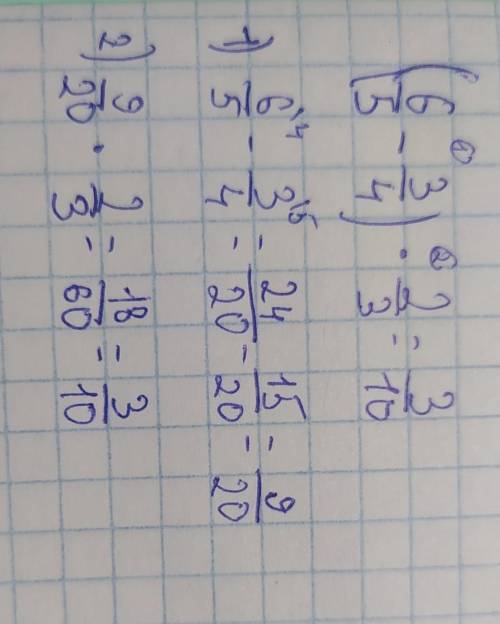 (6/5 - 3/4) · 2/3 = 3/10
① ②
1) 6/5 \4 - 3/4 \5 = 24/20 - 15/20 = 9/20
2) 9/20 · 2/3 = 18/60 = 3/10